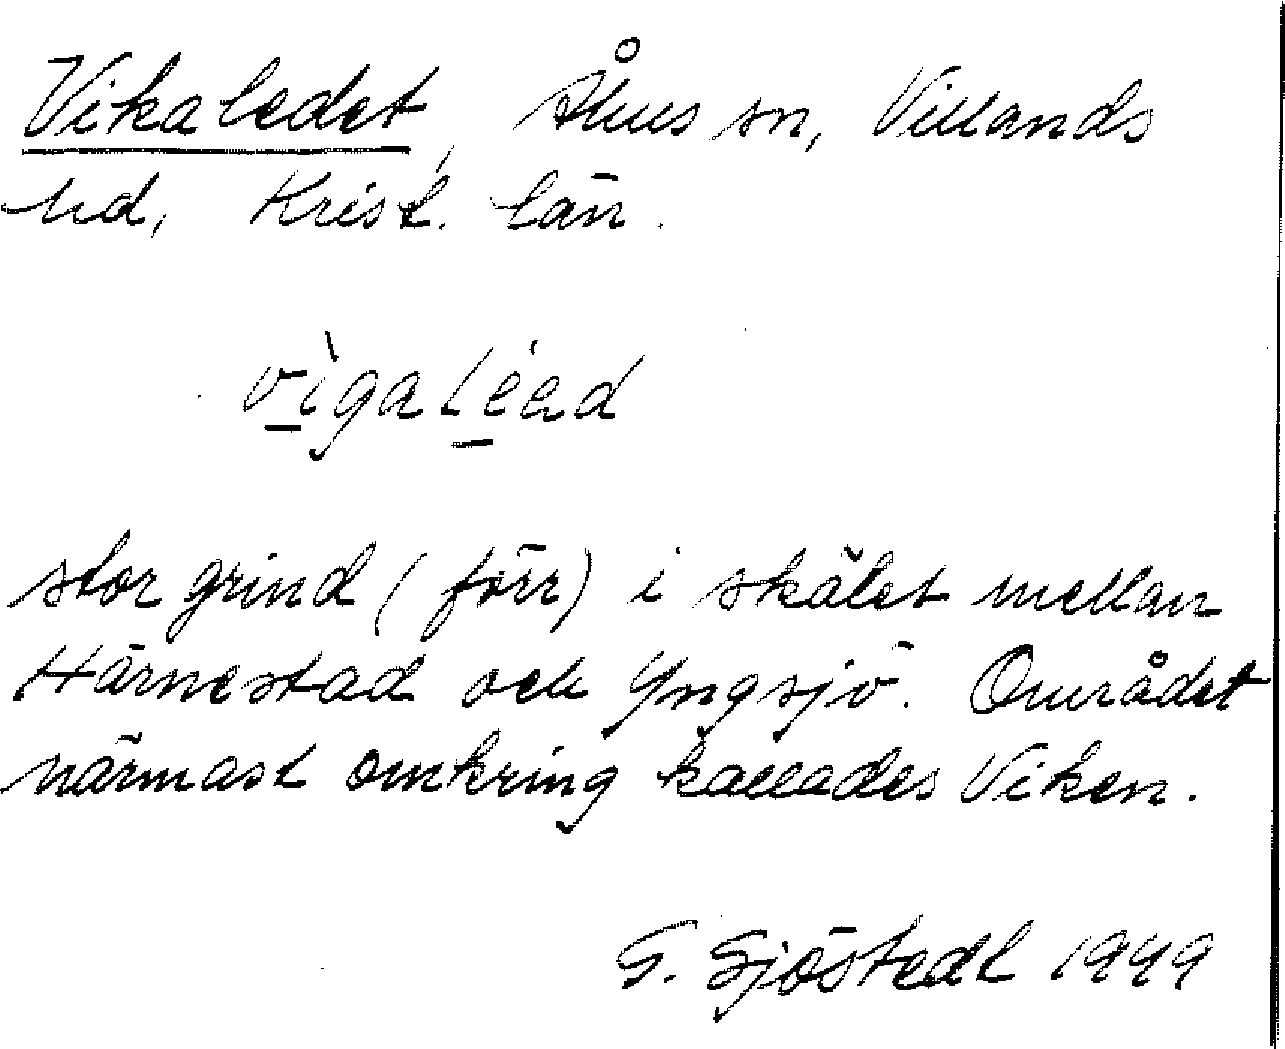 Vikaledet, Åhus sn, Villands
hd, Krist. län.
vìgaléad
stor grind (förr) i skälet mellan
Härnestad och Yngsjö. Området
närmast omkring kallades Viken.
G. Sjöstedt 1949